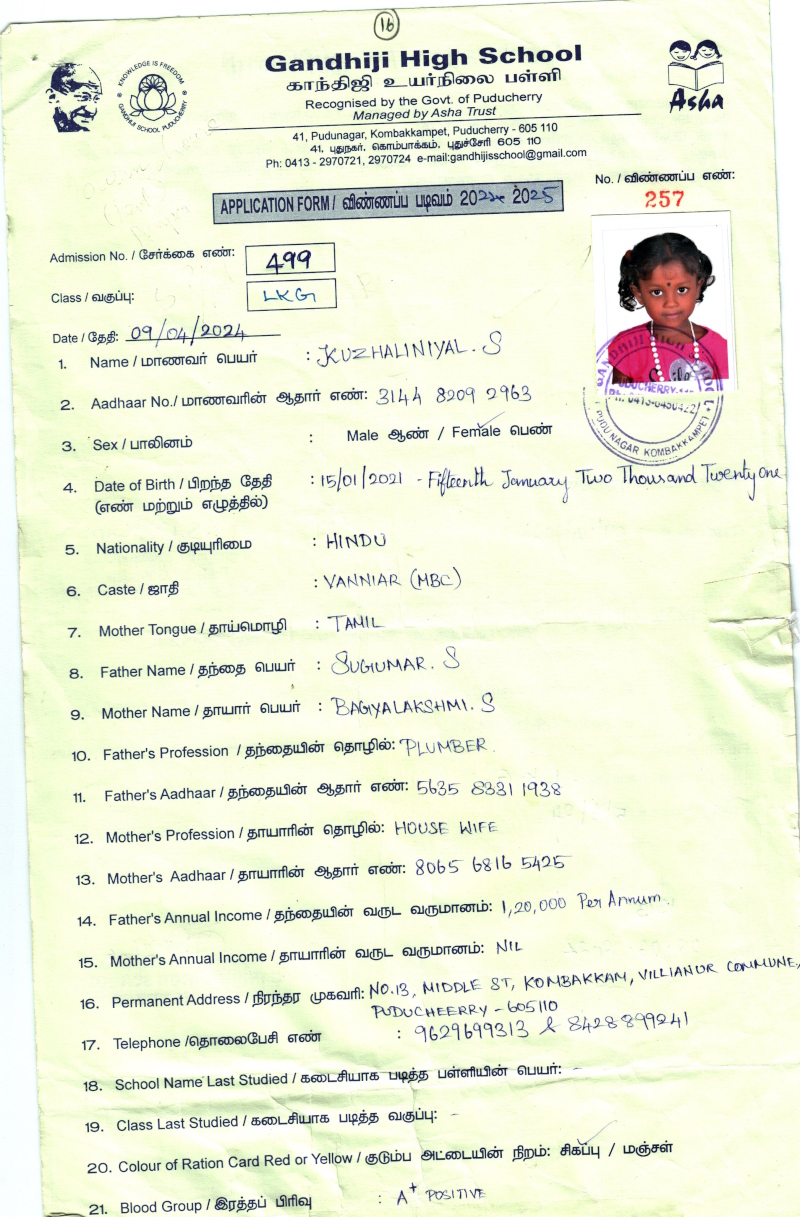 16
Gandhiji High School
காந்திஜி உயர்நிலை பள்ளி
Recognised by the Govt. of Puducherry
Managed by Asha Trust
KNOWLEDGE IS FREEDOM
GANDHIJI SCHOOL PUDUCHERRY
Asha
41, Pudunagar, Kombakkampet, Puducherry - 605 110
41, புதுநகர், கொம்பாக்கம், புதுச்சேரி 605 110
Ph: 0413 - 2970721, 2970724 e-mail:gandhijisschool@gmail.com
No. / விண்ணப்ப எண்:
257
APPLICATION FORM / விண்ணப்ப படிவம் 2024 2025
Admission No. / சேர்க்கை எண்: 499
Class / வகுப்பு: LKG
Date / தேதி: 09/04/2024
1. Name / மாணவர் பெயர் : KUZHALINIYAL. S
2. Aadhaar No./ மாணவரின் ஆதார் எண்: 3144 8209 2963
PUDUCHERRY
PUDU NAGAR KOMBAKKAMPET
3. Sex / பாலினம் : Male ஆண் / Female பெண்
4. Date of Birth / பிறந்த தேதி : 15/01/2021 - Fifteenth January Two Thousand Twenty one
(எண் மற்றும் எழுத்தில்)
5. Nationality / குடியுரிமை : HINDU
6. Caste / ஜாதி : VANNIAR (MBC)
7. Mother Tongue / தாய்மொழி : TAMIL
8. Father Name / தந்தை பெயர் : SUGIUMAR. S
9. Mother Name / தாயார் பெயர் : BAGIYALAKSHMI. S
10. Father's Profession / தந்தையின் தொழில்: PLUMBER.
11. Father's Aadhaar / தந்தையின் ஆதார் எண்: 5635 8331 1938
12. Mother's Profession / தாயாரின் தொழில்: HOUSE WIFE
13. Mother's Aadhaar / தாயாரின் ஆதார் எண்: 8065 6816 5425
14. Father's Annual Income / தந்தையின் வருட வருமானம்: 1,20,000 Per Annum.
15. Mother's Annual Income / தாயாரின் வருட வருமானம்: NIL
16. Permanent Address / நிரந்தர முகவரி: NO.13, MIDDLE ST, KOMBAKKAM, VILLIANUR COMMUNE,
PUDUCHEERRY - 605110
17. Telephone /தொலைபேசி எண் : 9629699313 & 8428899241
18. School Name Last Studied / கடைசியாக படித்த பள்ளியின் பெயர்: -
19. Class Last Studied / கடைசியாக படித்த வகுப்பு: -
20. Colour of Ration Card Red or Yellow / குடும்ப அட்டையின் நிறம்: சிகப்பு / மஞ்சள்
21. Blood Group / இரத்தப் பிரிவு : A+ POSITIVE